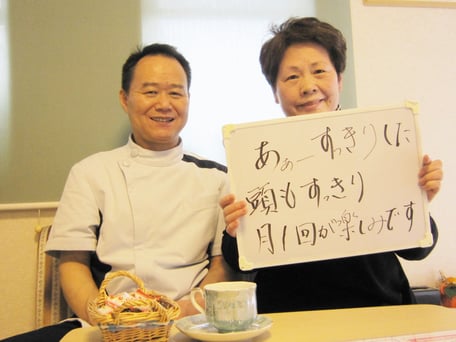 あぁーすっきりした
頭もすっきり
月1回が楽しみです